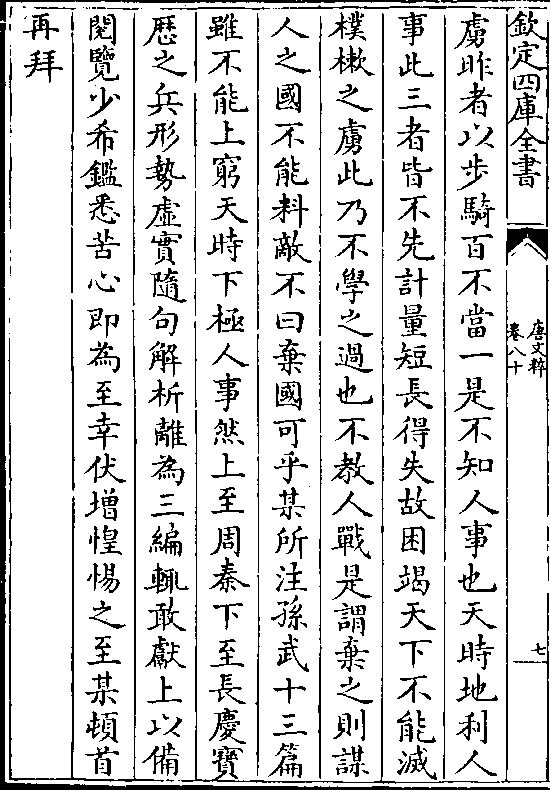 欽定四庫全書
唐文粹
卷八十
七
虜昨者以步騎百不當一是不知人事也天時地利人
事此三者皆不先計量短長得失故困竭天下不能滅
樸樕之虜此乃不學之過也不教人戰是謂棄之則謀
人之國不能料敵不曰棄國可乎某所注孫武十三篇
雖不能上窮天時下極人事然上至周秦下至長慶寶
歴之兵形勢虛實隨句解析離為三編輒敢獻上以備
閱覽少希鑑悉苦心即為至幸伏增惶惕之至某頓首
再拜